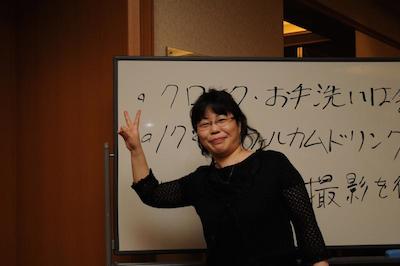 。クローク・お手洗いは
ルカムドリンク
撮影を